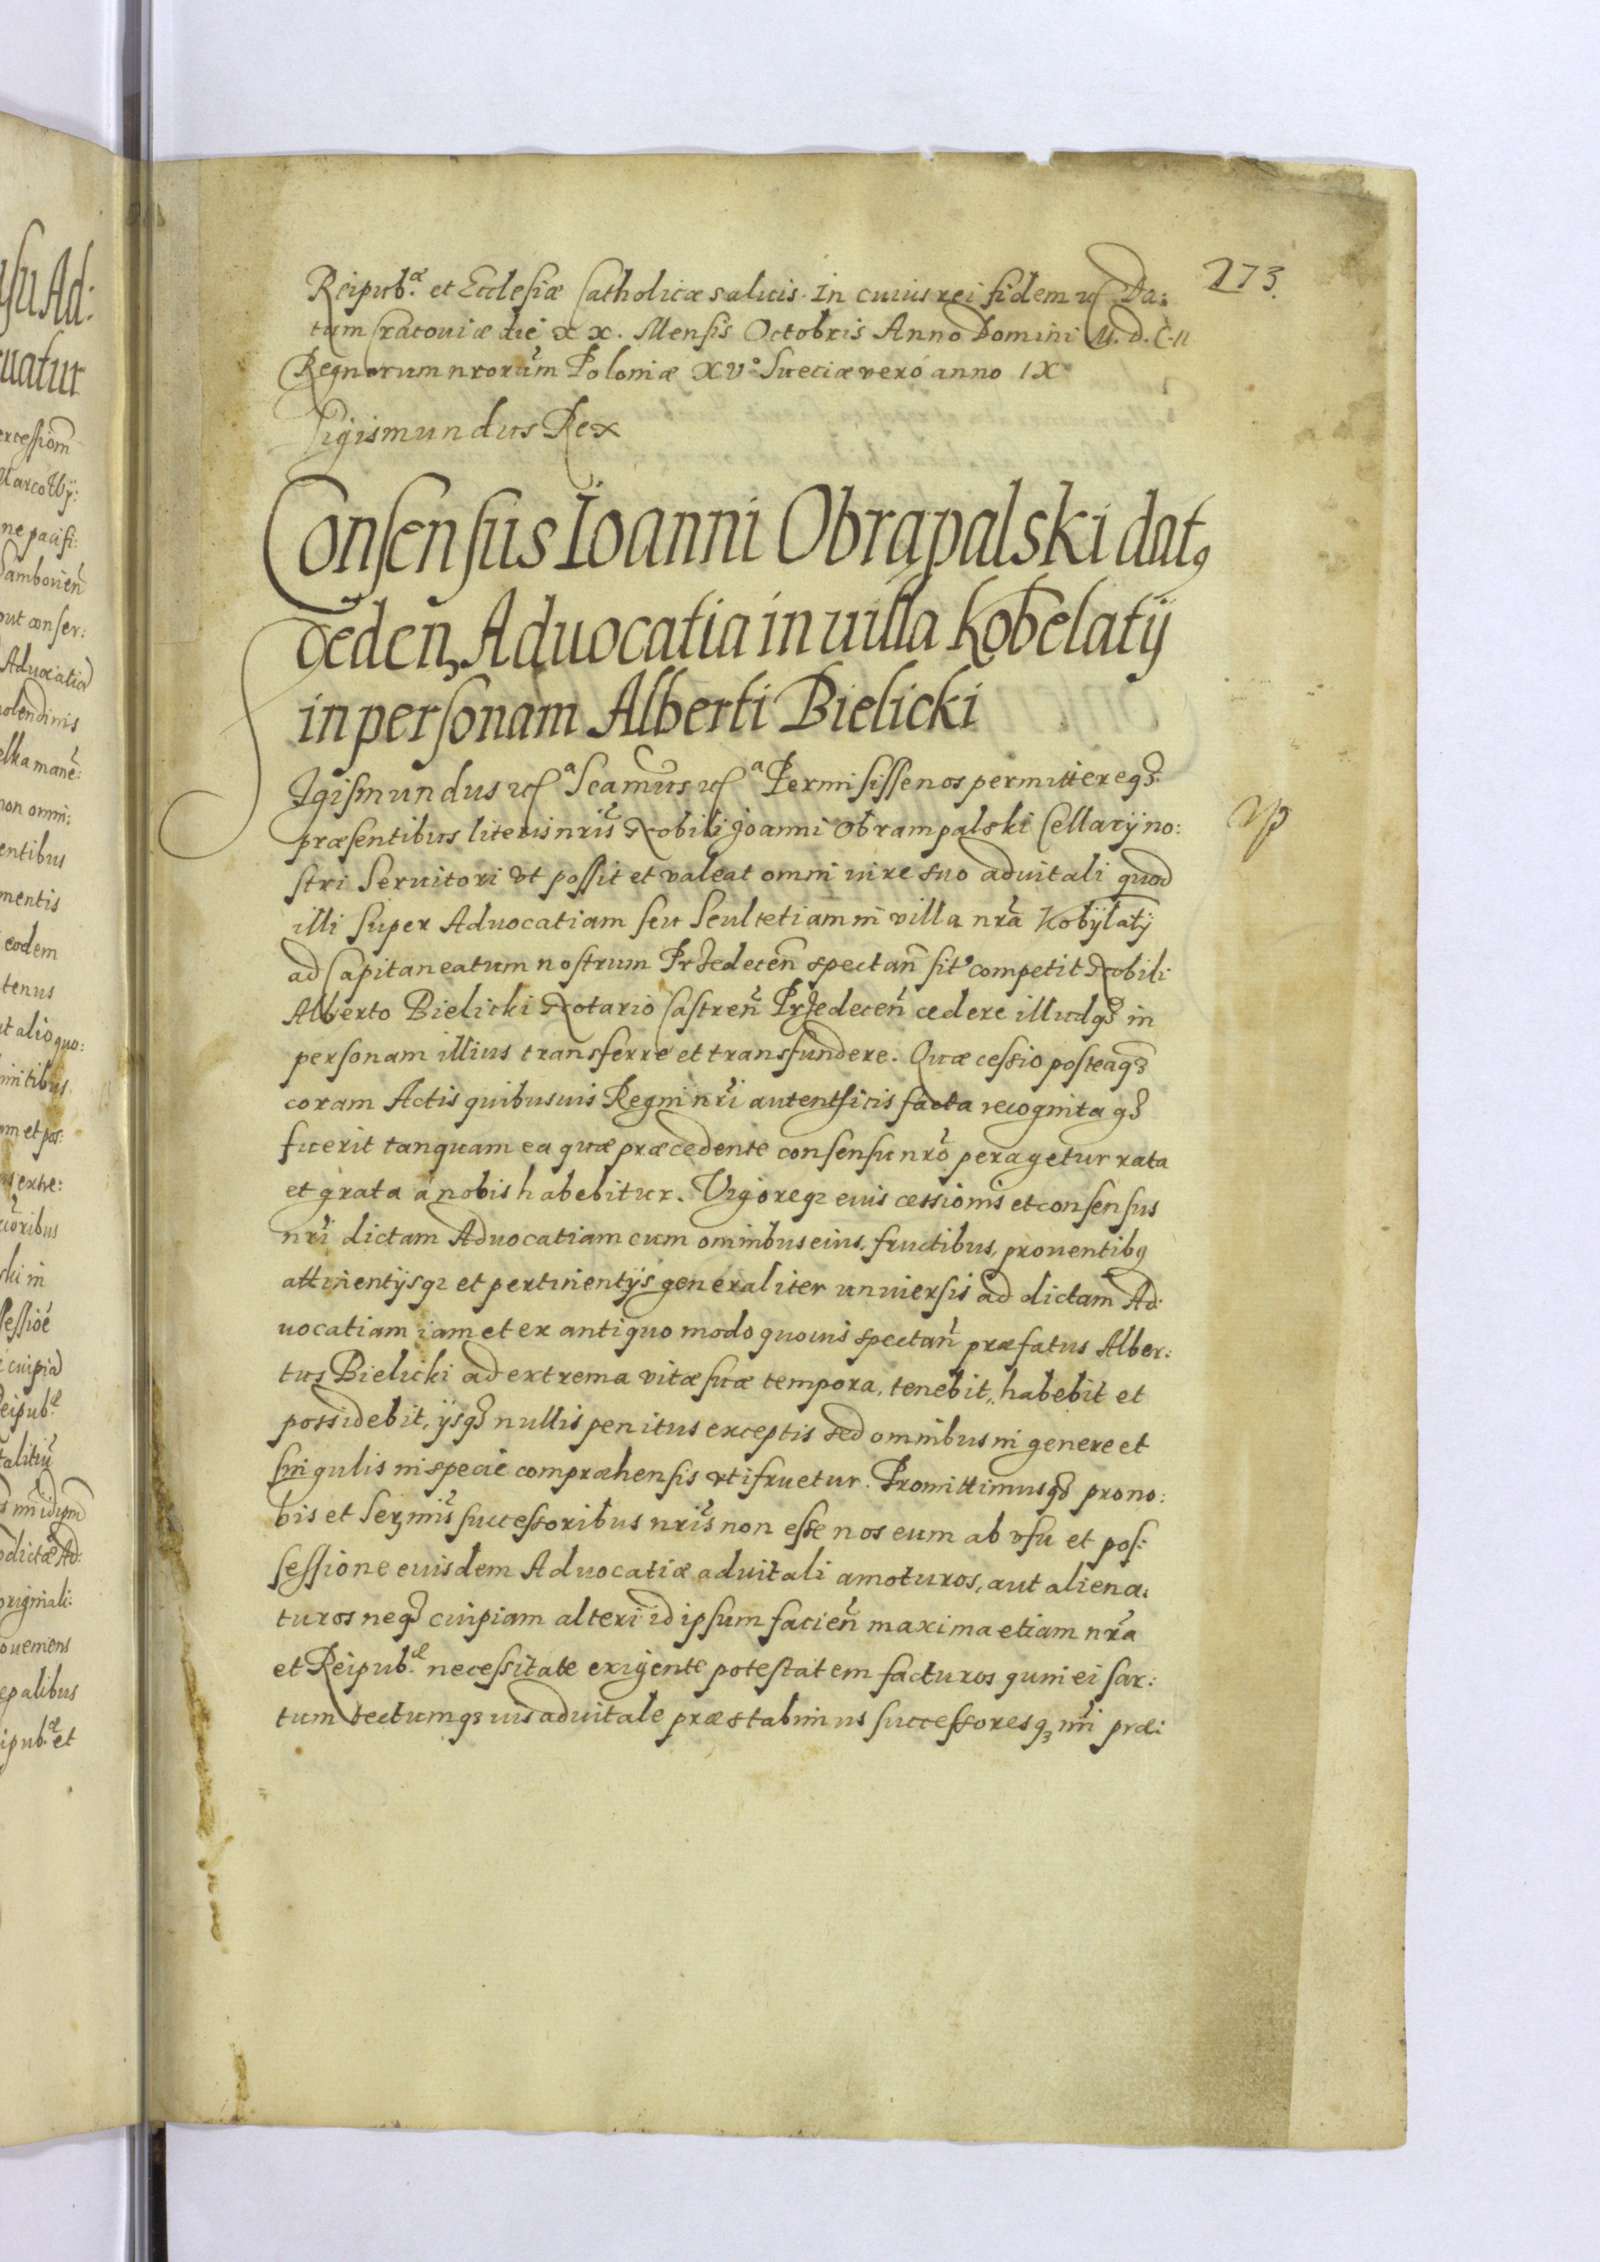 273.
Reipub.ᵃᵉ et Ecclesiæ Catholicæ salutis. In cuius rei fidem etc. Da:
tum Cracouiæ die XX. Mensis Octobris Anno Domini M.D.C.II
Regnorum nrorum Poloniæ XV° Sueciæ vero anno IX°
Sigismundus Rex
Consensus Ioanni Obrąpalski datꝰ
cedenꝫ Aduocatia in uilla Kobelatÿ
in personam Alberti Bielicki
Sigismundus etc.ᵃ Seamus etc.ᵃ Permisisse nos permittereqꝫ
præsentibus literis nris Nobili Joanni Obrampalski Cellarÿ no:
stri Seruitori vt possit et valeat omni iure suo aduitali quod
illi super Aduocatiam seu Scultetiam in villa nra Kobÿlatÿ
ad Capitaneatum nostrum Przedecen spectan sit competit Nobili
Alberto Bielicki Notario Castren Przedecen cedere illudqꝫ in
personam illius transferre et transfundere. Quæ cessio posteaqꝫ
coram Actis quibusuis Regni nri autenthicis facta recognitaqꝫ
fuerit tanquam ea quæ præcedente consensu nro peragetur rata
et grata a nobis habebitur. Vigoreqꝫ euis cessionis et consensus
nri dictam Aduocatiam cum omnibus eius, fructibus, prouentibꝰ
attinentÿsqꝫ et pertinentÿs generaliter uniuersis ad dictam Ad:
uocatiam iam et ex antiquo modo quouis spectan præfatus Alber:
tus Bielicki ad extrema vitæ suæ tempora, tenebit, habebit et
possidebit, ÿsqꝫ nullis penitus exceptis sed omnibus in genere et
singulis in specie compræhensis vtifruetur. Promittimusqꝫ pro no:
bis et Serꝫmis successoribus nris non esse nos eum ab vsu et pos:
sessione euisdem Aduocatiæ aduitali amoturos, aut aliena:
turos neqꝫ cuipiam alteri id ipsum facien maxima etiam nra
et Reipub.ᵃᵉ necessitate exigente potestatem facturos quin ei sar:
tum tectumqꝫ uis aduitale præstabimus successoresqꝫ nri præ: